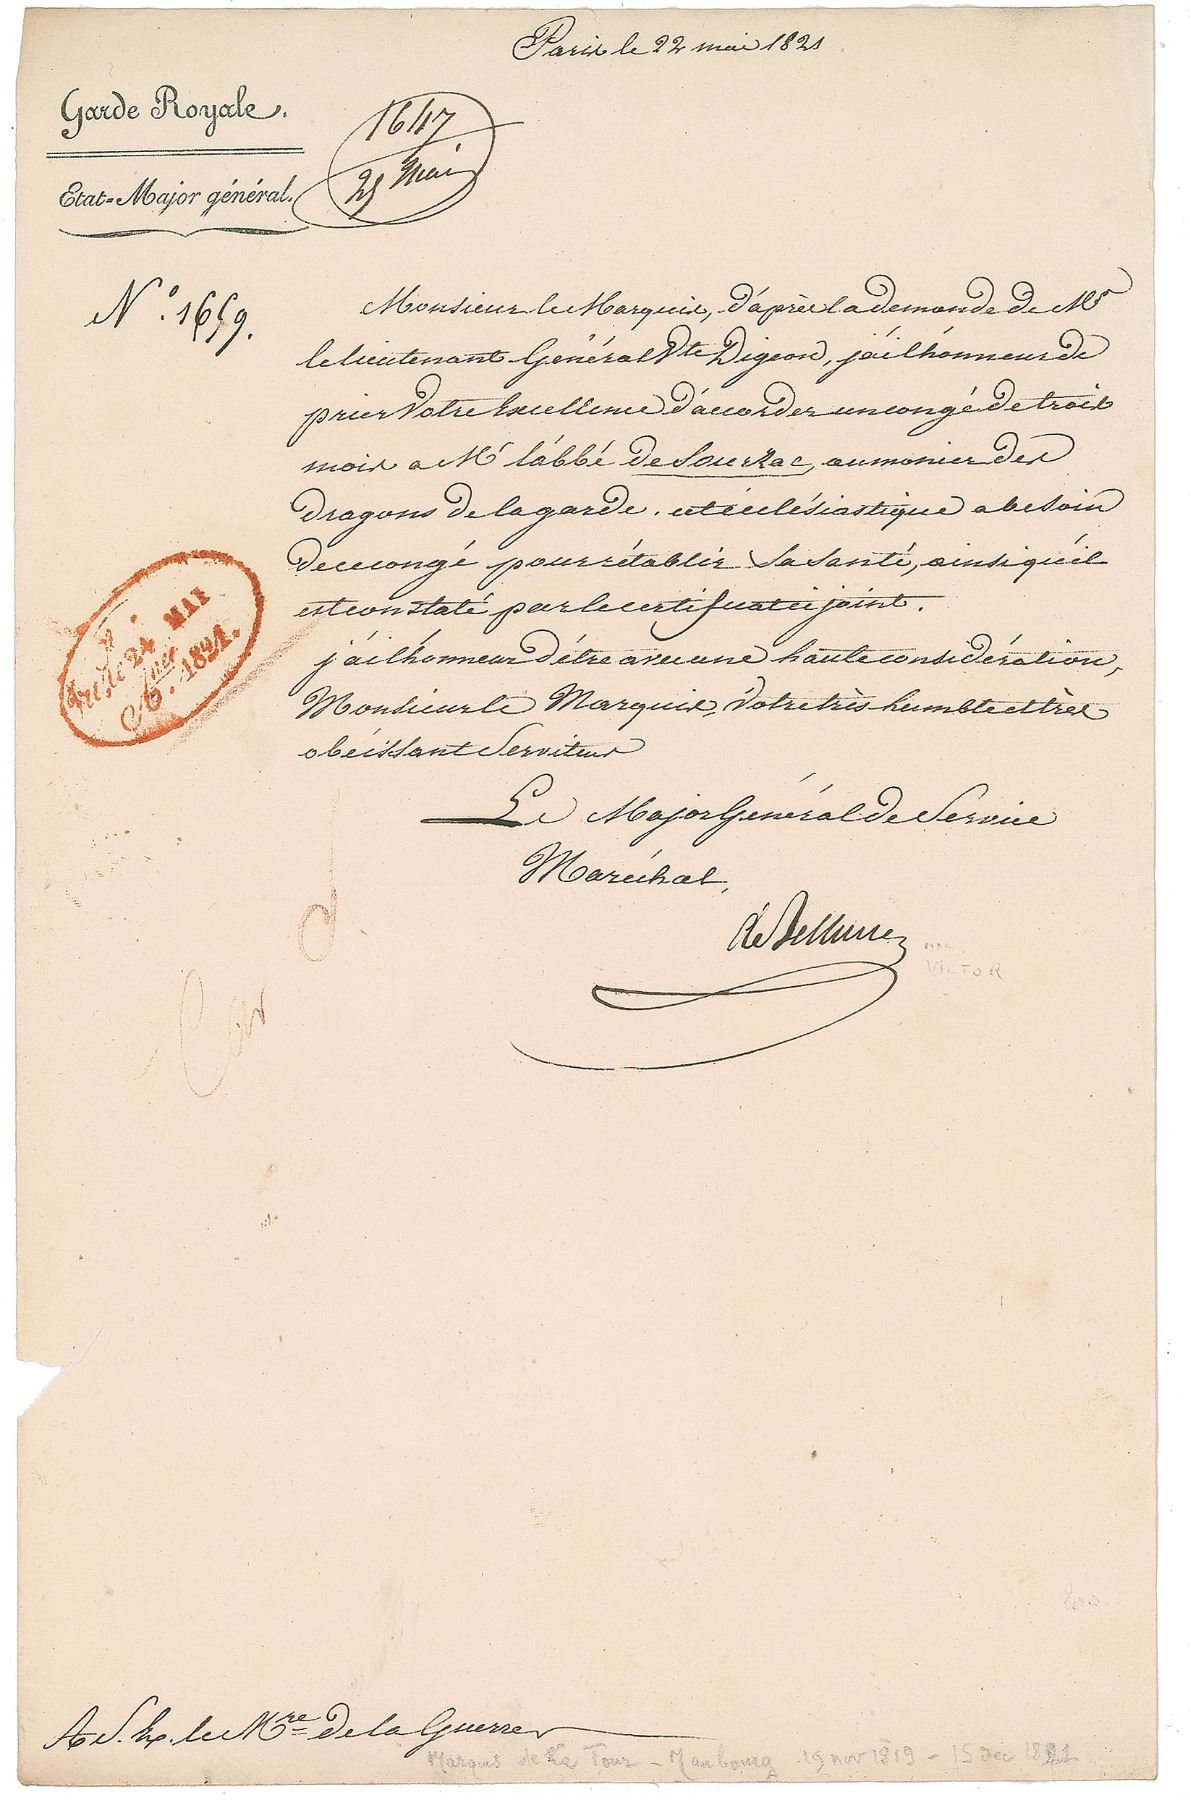 Paris le 22 mai 1821
Garde Royale.
1647
25 Mai
Etat-Major général.
N.° 1659.
Monsieur le Marquis, d'après la demande de Mr
le lieutenant Général Vte Digeon, j'ai l'honneur de
prier Votre Excellence d'accorder un congé de trois
mois a Mr l'abbé de Sourzac, aumonier des
dragons de la garde. cet écclésiastique a besoin
de ce congé pour rétablir Sa Santé, ainsi qu'il
est constaté par le certificat ci joint.
j'ai l'honneur d'être avec une haute considération,
Monsieur le Marquis, Votre très humble et très
obéissant Serviteur
24 MAI
1821.
Le Major Général de Service
Maréchal,
de Bellune
VICTOR
A S. Ex. le Mre de la Guerre
Marquis de La Tour - Maubourg 19 nov 1819 - 15 Dec 1821